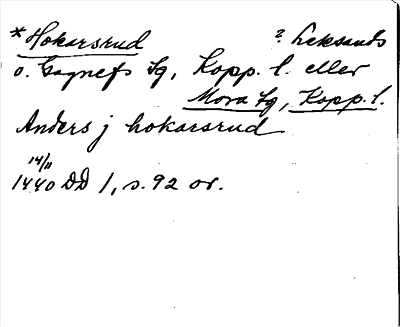 *Hokarsrud ? Leksands
o. Gagnefs tg, Kopp. l. eller
Mora tg, Kopp. l.
Anders j hokarsrud
14/11
1440 DD 1, s. 92 or.